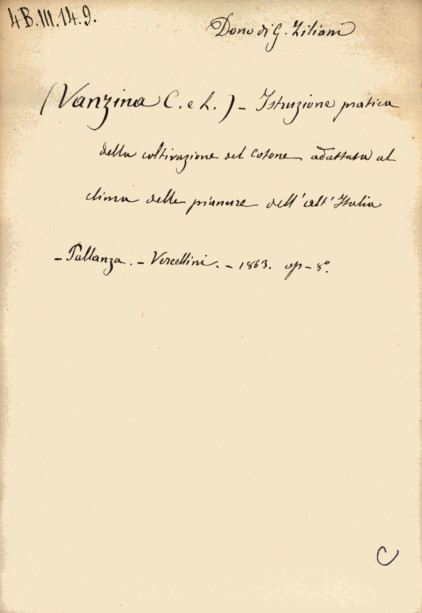 4B.III.14.9.
Dono di G. Ziliani
(Vanzina C. e L.) - Istruzione pratica
della coltivazione del cotone adattata al
clima delle pianure dell'alt'Italia
- Pallanza. - Vercellini. - 1863. op - 8°.
C